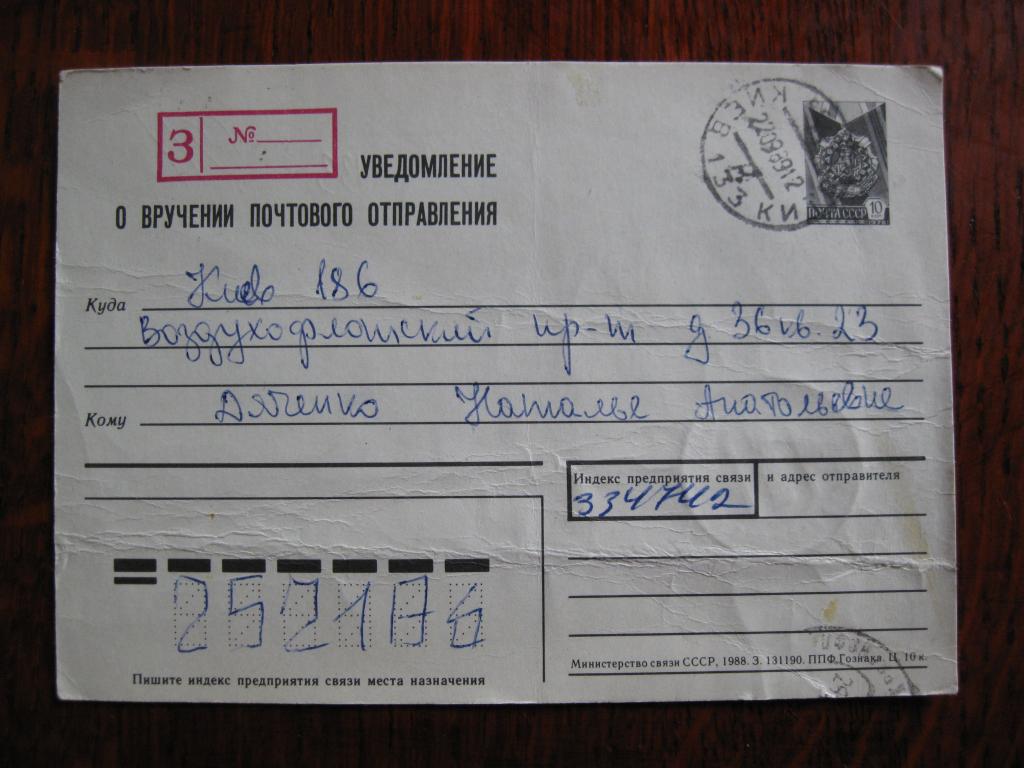 З №
УВЕДОМЛЕНИЕ
О ВРУЧЕНИИ ПОЧТОВОГО ОТПРАВЛЕНИЯ
КИЕВ 133 КИ
22098912
ПОЧТА СССР 10
Куда Киев 186
Воздухофлотский пр-т д 36 кв. 23
Кому Дяченко Наталье Анатольевне
Индекс предприятия связи и адрес отправителя
334742
252186
Пишите индекс предприятия связи места назначения
Министерство связи СССР, 1988. З. 131190. ППФ Гознака. Ц. 10 к.